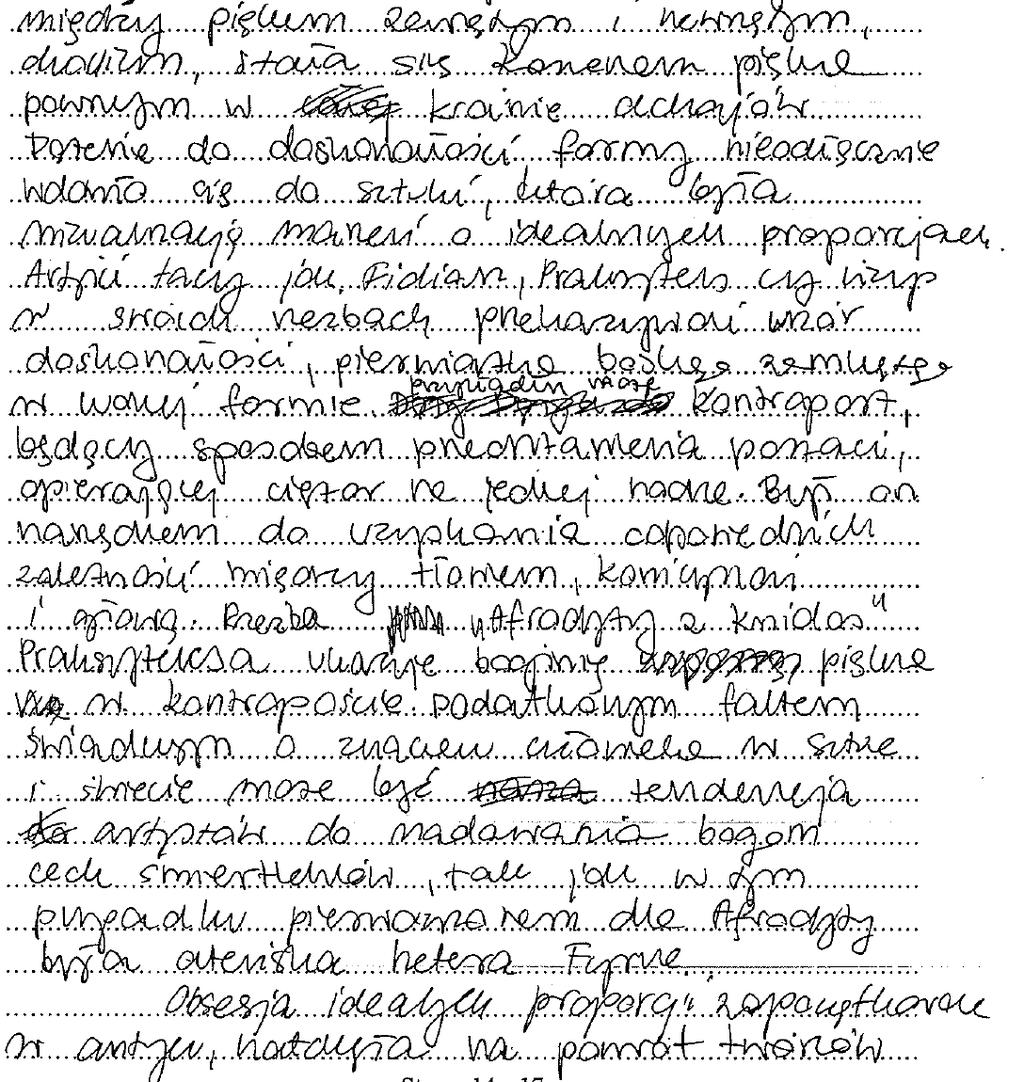 między pięknem zewnętrznym i wewnętrznym,
stała się kanonem piękna
pewnym w krainie achajów
Dążenie do doskonałości formy nieodłącznie
wdało się do sztuki, która była
wizualizacją marzeń o idealnych proporcjach.
Artyści tacy jak, Fidiasz, Praksyteles czy Lizyp
w swoich rzeźbach przekazywali wzór
doskonałości, pierwiastka boskiego zamkniętego
w formie przykładem może kontrapost,
będący sposobem przedstawienia postaci,
opierającej ciężar na jednej nodze. Był on
narzędziem do uzyskania odpowiednich
zależności między tłowiem, kończynami
i głową. Rzeźba "Afrodyty z Knidos"
Praksytelesa ukazuje boginię piękna
w kontrapoście. Dodatkowym faktem
świadczym o znaczeniu człowieka w sztuce
i świecie może być tendencja
artystów do nadawania bogom
cech śmiertelników, tak jak w tym
przypadku pierwowzorem dla Afrodyty
była ateńska hetera Fryne.
Obsesja idealnych proporcji zapoczątkowana
w antyku, natchnęła na powrót twórców